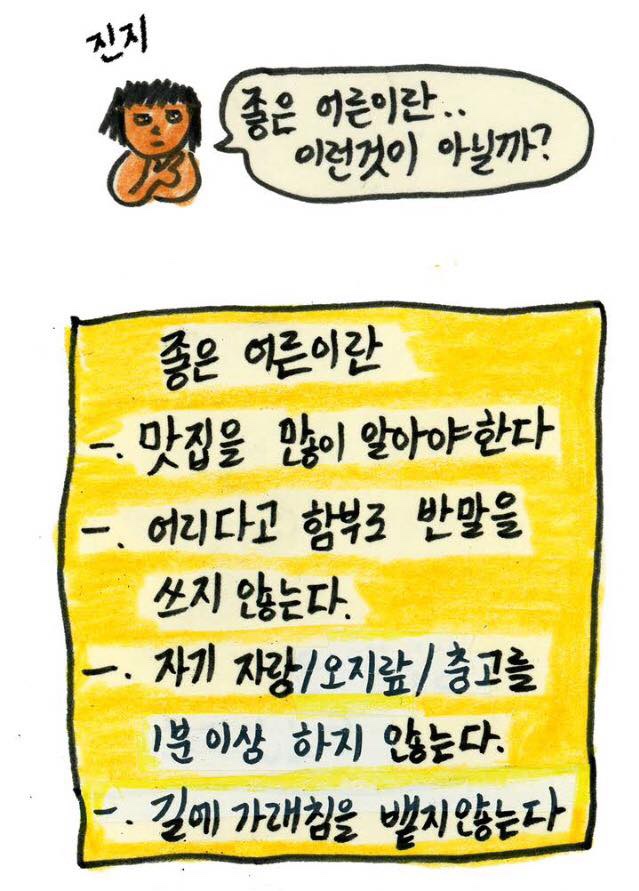 진지
좋은 어른이란..
이런것이 아닐까?
좋은 어른이란
一. 맛집을 많이 알아야한다
一. 어리다고 함부로 반말을
쓰지 않는다.
一. 자기 자랑/오지랖/충고를
1분이상 하지 않는다.
一. 길에 가래침을 뱉지않는다